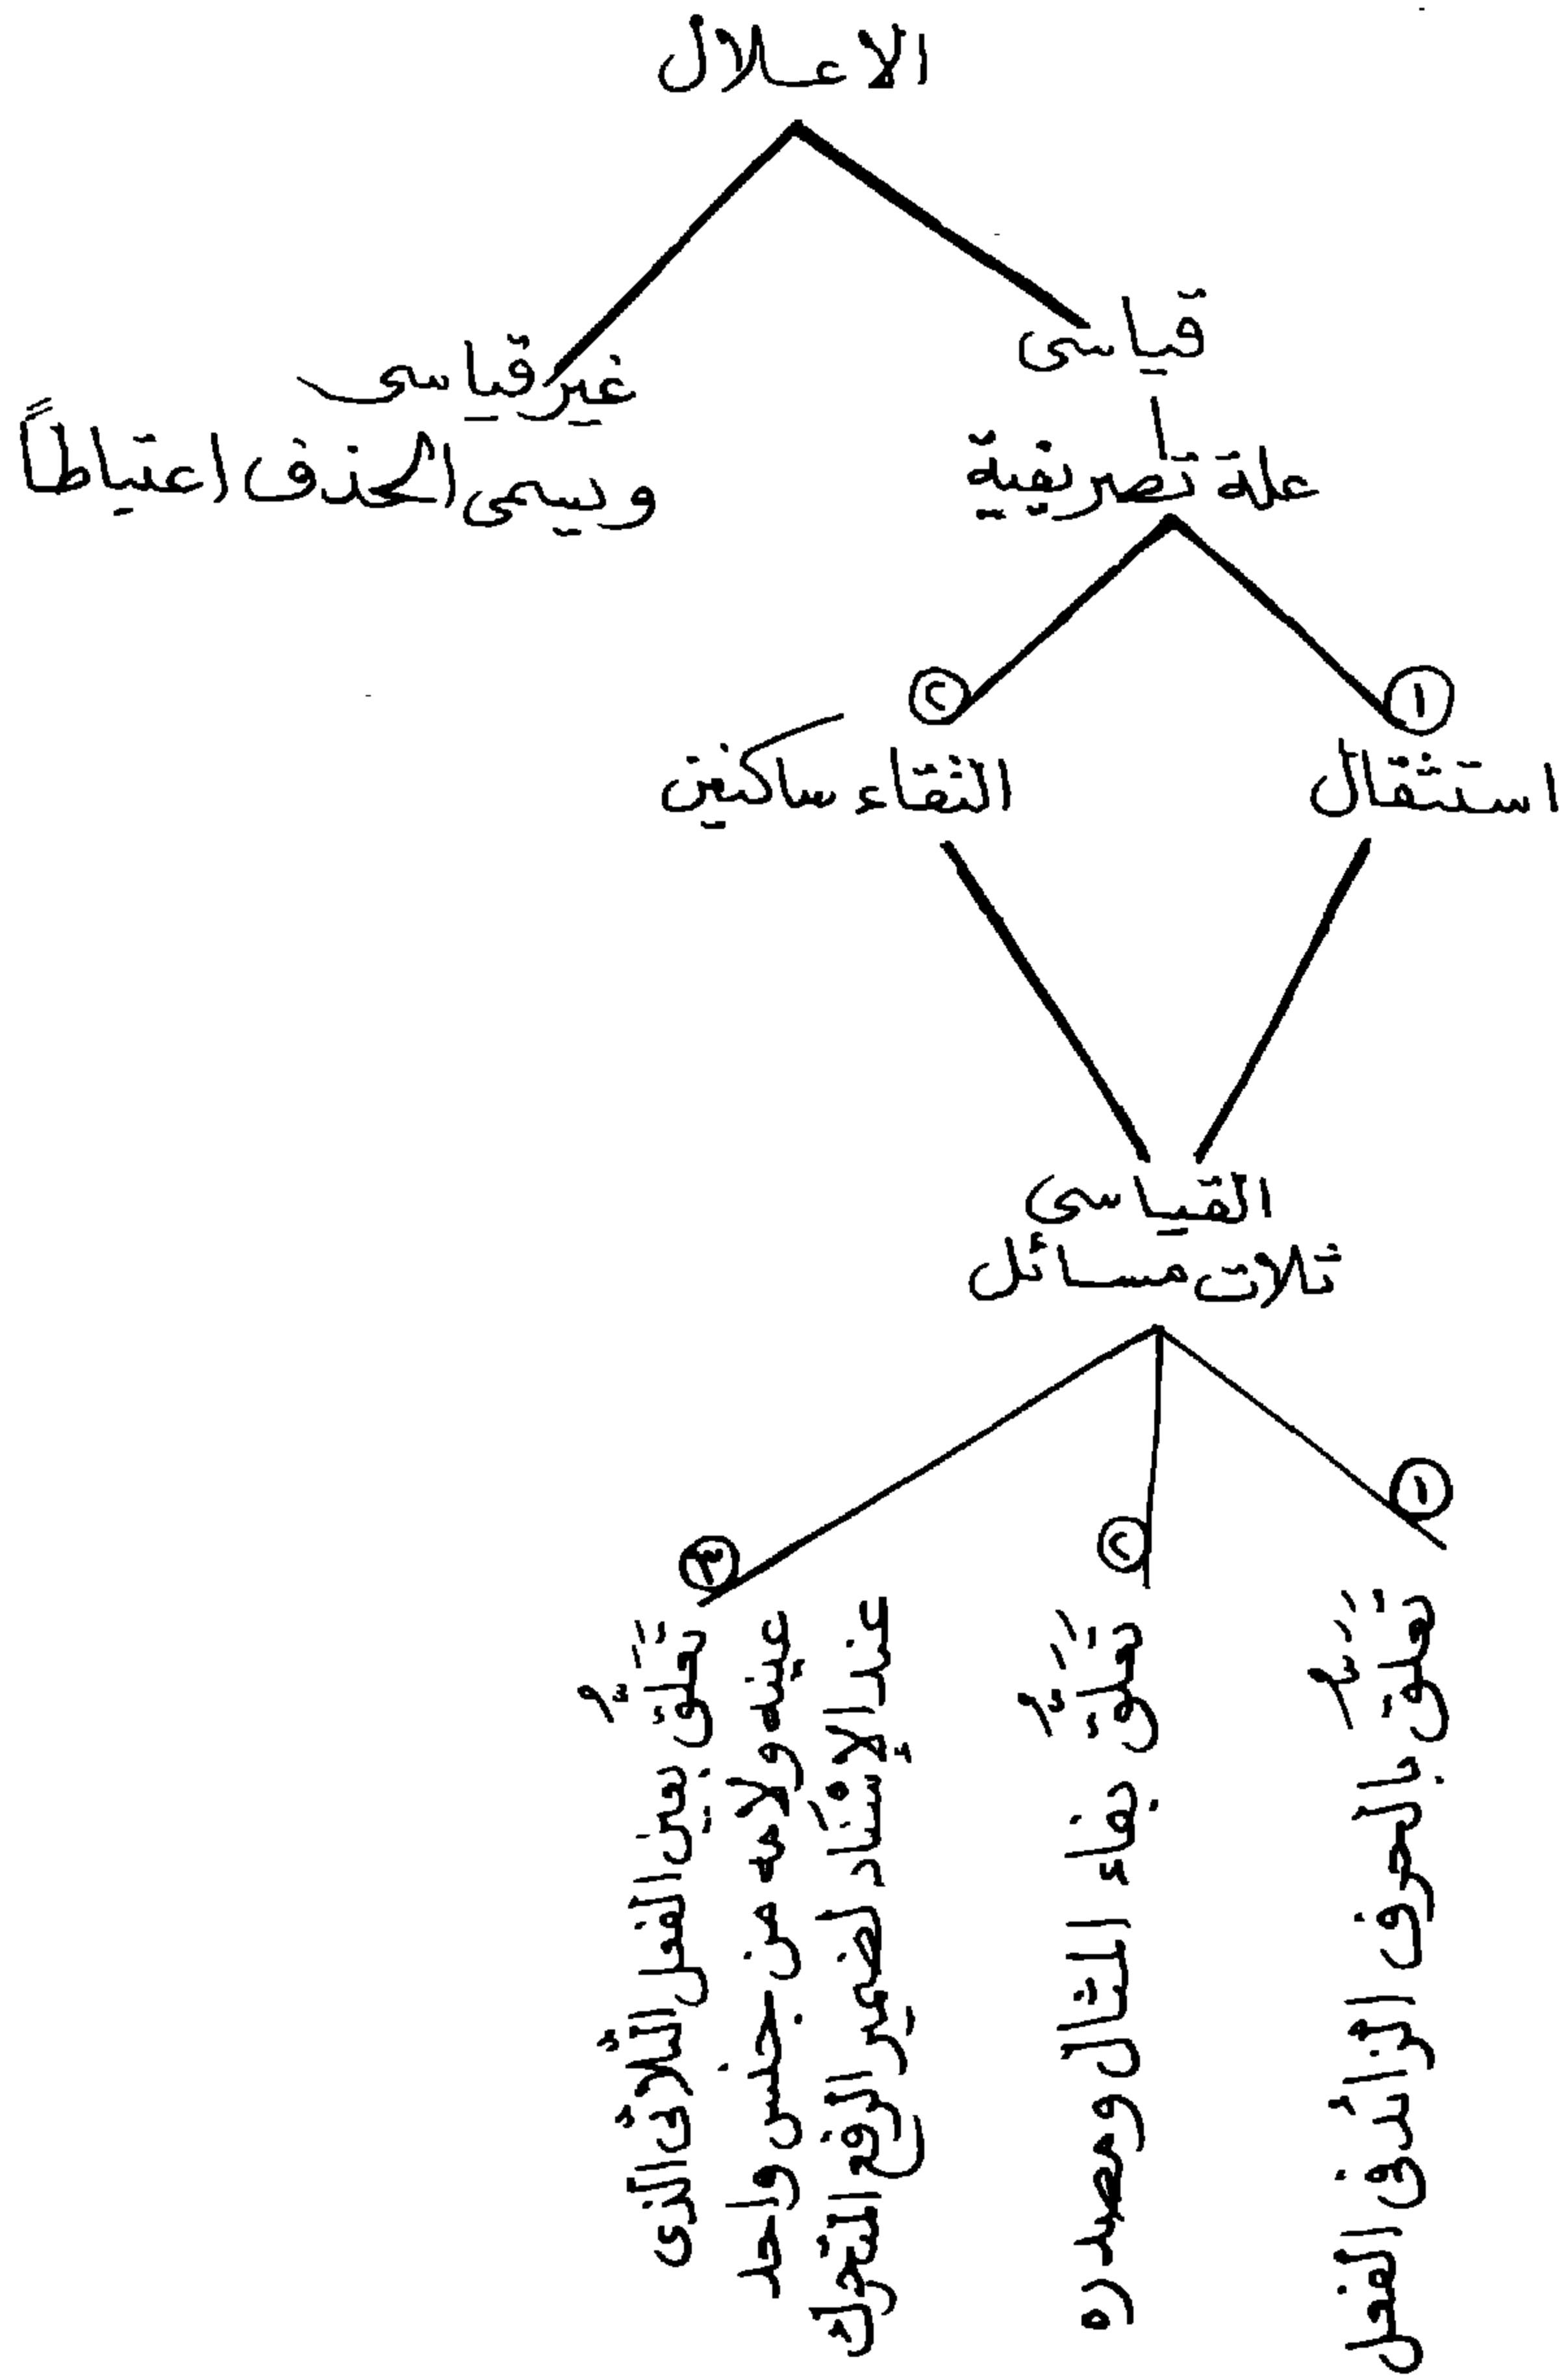 الاعلال
قياسى
غير قياسى
علة تصريفية
ويسمى الحذف اعتباطاً
١
٢
استثقال
التقاء ساكنين
القياسى
ثلاث مسائل
١
تتعلق بالحرف الزائد فى الفعل
٢
تتعلق بفاء المثال ومصدره
٣
تتعلق بعين الفعل الثلاثى الذى
عينه ولامه من جنس واحد
عند الإسناد لضمير الرفع المتحرك